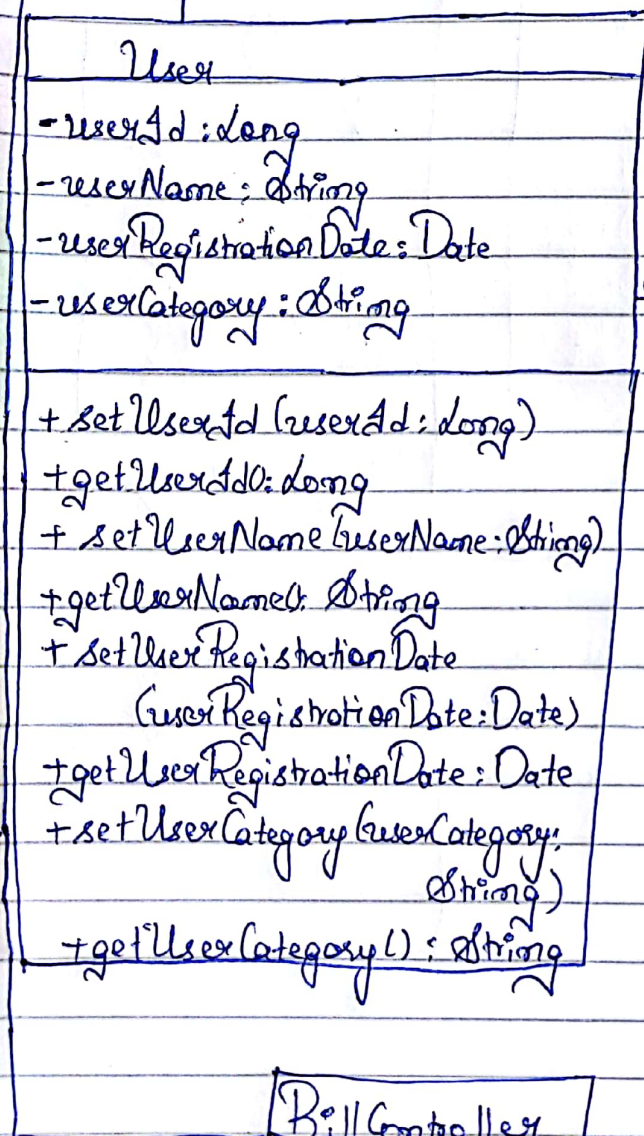 User
-userId : Long
-userName : String
-userRegistrationDate : Date
-userCategory : String
+ setUserId (userId : Long)
+getUserId() : Long
+ setUserName (userName : String)
+getUserName() : String
+ setUserRegistrationDate
(userRegistrationDate : Date)
+getUserRegistrationDate : Date
+setUserCategory (userCategory :
String)
+getUserCategory() : String
BillController